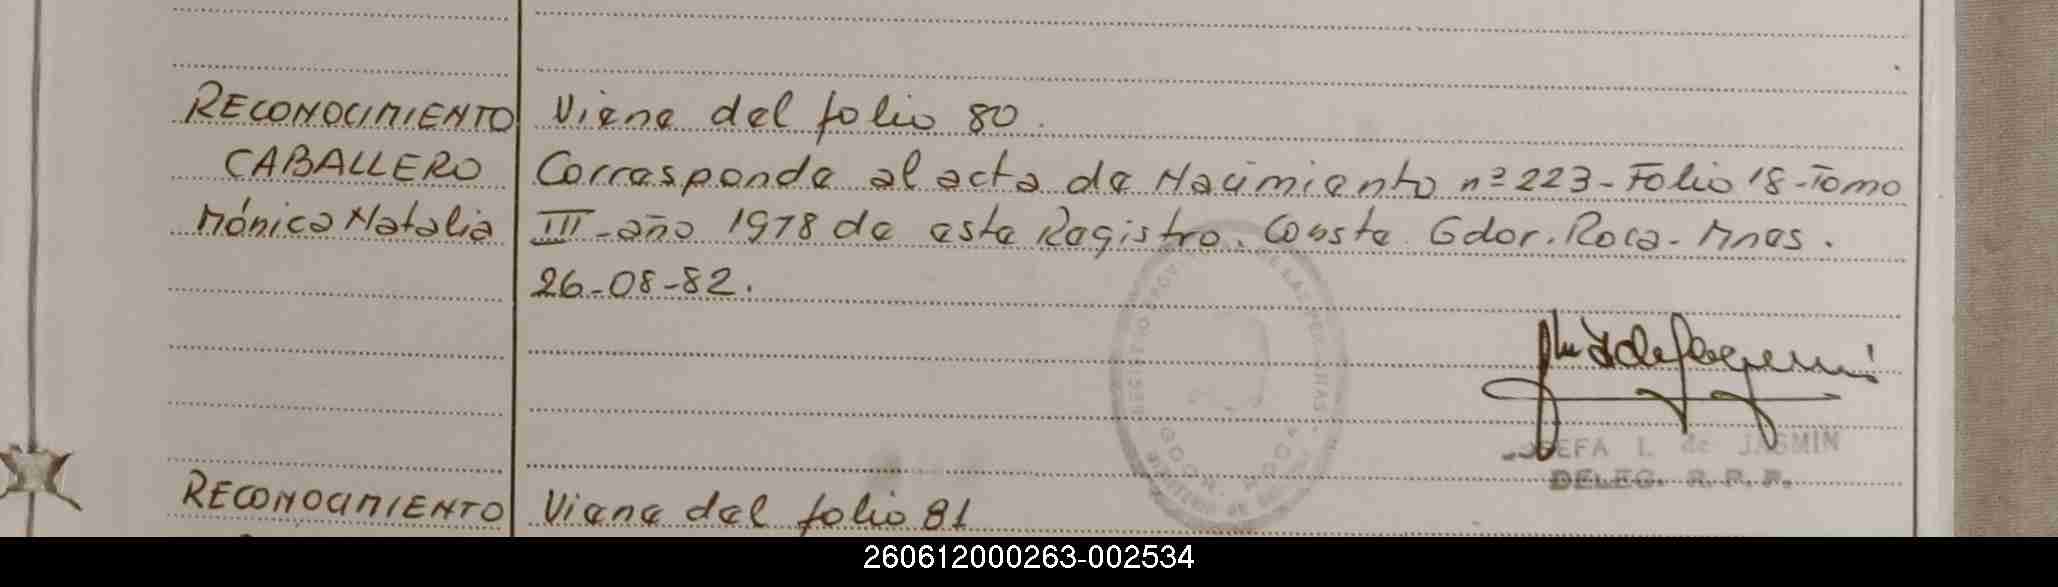 RECONOCIMIENTO Viene del folio 80.
CABALLERO Corresponde al acta de Nacimiento nº 223-Folio 18-Tomo
Mónica Natalia III-año 1978 de este Registro. Conste. Gdor. Roca-Mnes.
26-08-82.
JOSEFA I. de JASMIN
DELEG. R.P.P.
RECONOCIMIENTO Viene del folio 81
260612000263-002534